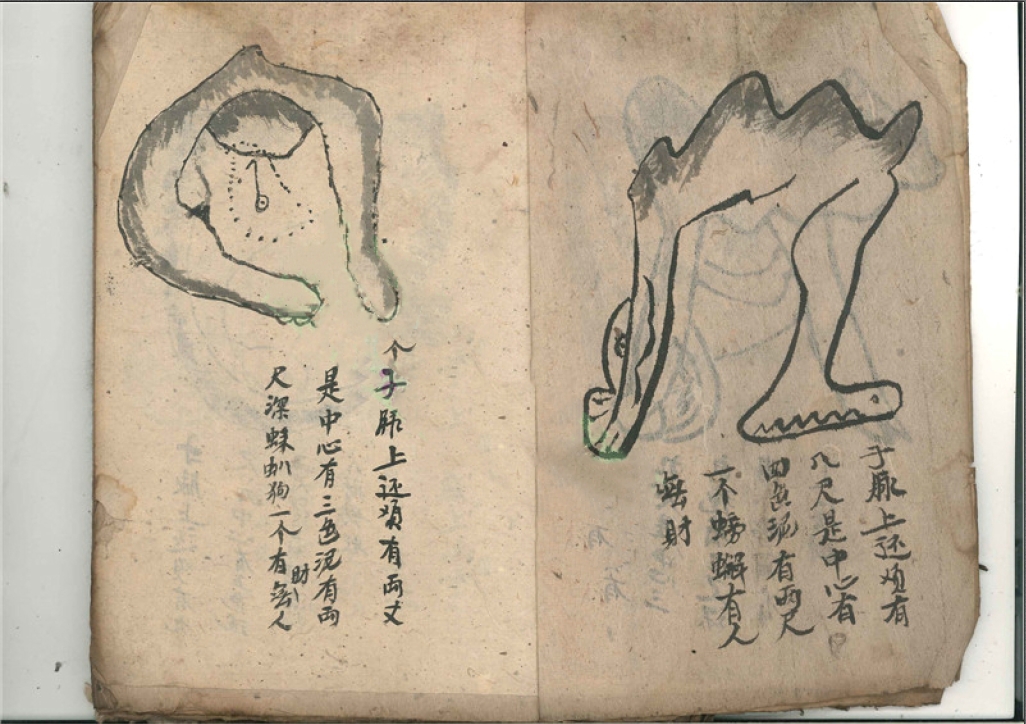 子脈上还烦有
八尺是中心有
四色泥有两尺
一个螃蠏有人
無財
个子脈上还烦有两丈
是中心有三色泥有两
尺深蛛虯狗一个有無人
財